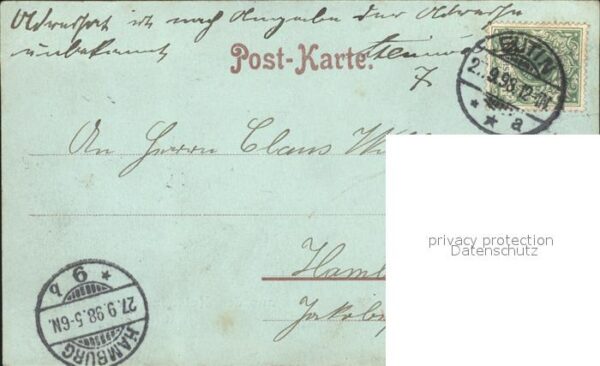 Adressat ist nach Angabe der Adresse
unbekannt
Post-Karte.
7
EUTIN
2..9.98.12-
* * a
An Herrn Claus
privacy protection
Datenschutz
Ham
Jakob
* 6 b
27.9.98.5-6N.
HAMBURG